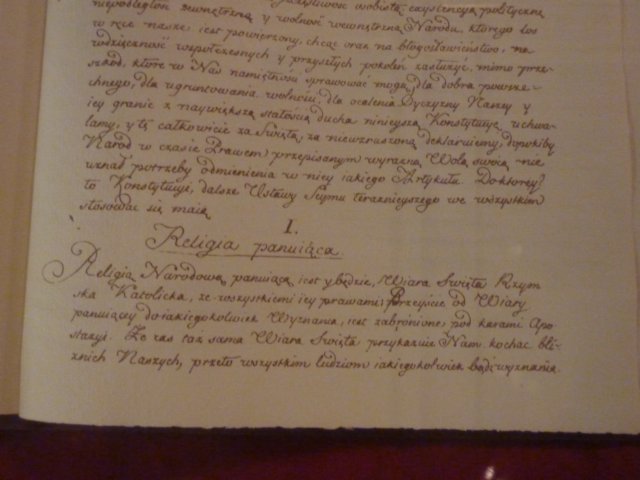 osobistą, exystencyą polityczną
niepodległość zewnętrzną y wolność wewnętrzną Narodu, ktorego los
w ręce nasze iest powierzony, chcąc oraz na błogosławieństwo, na
wdzięczność wspołczesnych y przyszłych pokoleń zasłużyć, mimo prze-
szkod, ktore w Nas namiętności sprawować mogą, dla dobra powsze-
chnego, dla ugruntowania wolności, dla ocalenia Oyczyzny Naszey y
iey granic z naywiększą stałością ducha ninieyszą Konstytucyę uchwa-
lamy, y tę całkowicie za Świętą, za niewzruszoną deklaruiemy, dopokiby
Narod w czasie Prawem przepisanym wyraźną Wolą swoią nie
uznał potrzeby odmienienia w niey iakiego Artykułu. Do ktorey
to Konstytucyi, dalsze Ustawy Seymu teraznieyszego we wszystkim
stosować się maią
I.
Religia panuiąca
Religią Narodową panuiącą iest y będzie, Wiara Święta Rzym
ska Katolicka, ze wszystkiemi iey prawami, Przeyście od Wiary
panuiącey do iakiegokolwiek Wyznania, iest zabronione pod karami Apo
stazyi. Że zaś taż sama Wiara Święta przykazuie Nam kochać bli-
źnich Naszych, przeto wszystkim ludziom iakiegokolwiek bądź wyznania